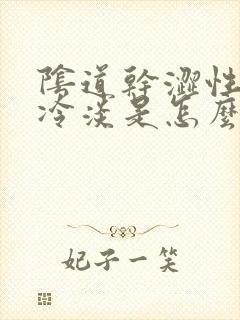 陰道幹澀性
冷淡是怎麼
妃子一笑